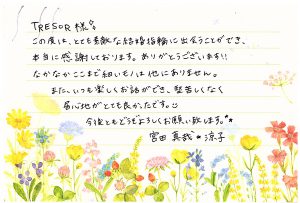 TRESOR 様
この度は、とても素敵な結婚指輪に出会うことができ、
本当に感謝しております。ありがとうございます!!
なかなかここまで細いモノは他にありません。
また、いつも楽しくお話ができ、堅苦しくなく
居心地がとても良かったです。
今後ともどうぞよろしくお願い致します。
宮田 真哉 * 涼子